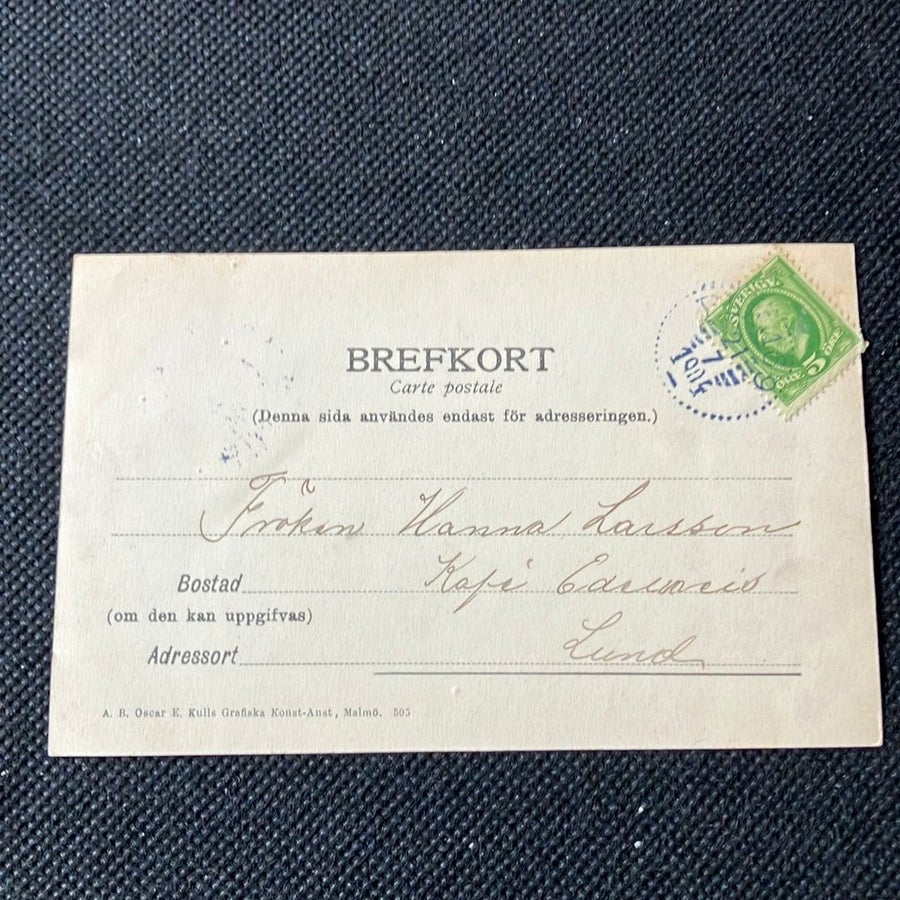 BREFKORT
Carte postale
(Denna sida användes endast för adresseringen.)
SVERIGE
5 ÖRE
7
1904
Fröken Hanna Larsson
Bostad Kafé
(om den kan uppgifvas)
Adressort Lund
A. B. Oscar E. Kulls Grafiska Konst-Anst, Malmö. 505